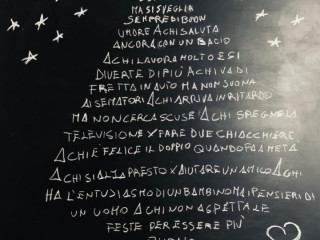 MA SI SVEGLIA
SEMPRE DI BUON
UMORE A CHI SALUTA
ANCORA CON UN BACIO
A CHI LAVORA MOLTO E SI
DIVERTE DI PIÙ A CHI VA DI
FRETTA IN AUTO MA NON SUONA
AI SEMAFORI A CHI ARRIVA IN RITARDO
MA NON CERCA SCUSE A CHI SPEGNE LA
TELEVISIONE X FARE DUE CHIACCHIERE
A CHI È FELICE IL DOPPIO QUANDO FA A META
A CHI SI ALZA PRESTO X AIUTARE UN AMICO A CHI
HA L'ENTUSIASMO DI UN BAMBINO MA I PENSIERI DI
UN UOMO A CHI NON ASPETTA LE
FESTE PER ESSERE PIÙ